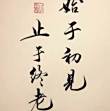 始于初见
止于终老